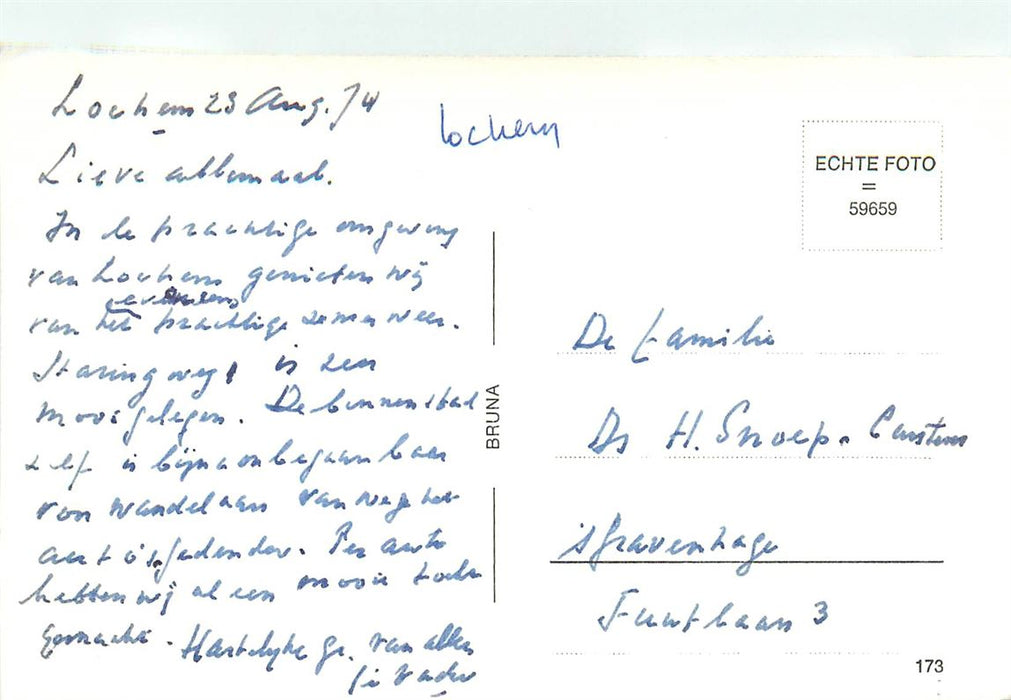 Lochem 23 Aug. 74
Lieve allemaal.
In de prachtige omgeving
van Lochem genieten wij
eveneens
van het prachtige zomerweer.
Staringweg 1 is zeer
mooi gelegen. De binnenstad
zelf is bijna onbegaanbaar
voor wandelaars vanwege het
auto
hebben wij al een mooie tocht
gemaakt. Hartelijke gr. van allen
Vader
Lochem
ECHTE FOTO
=
59659
BRUNA
De Familie
Ds H. Snoep-Carstens
's Gravenhage
laan 3
173